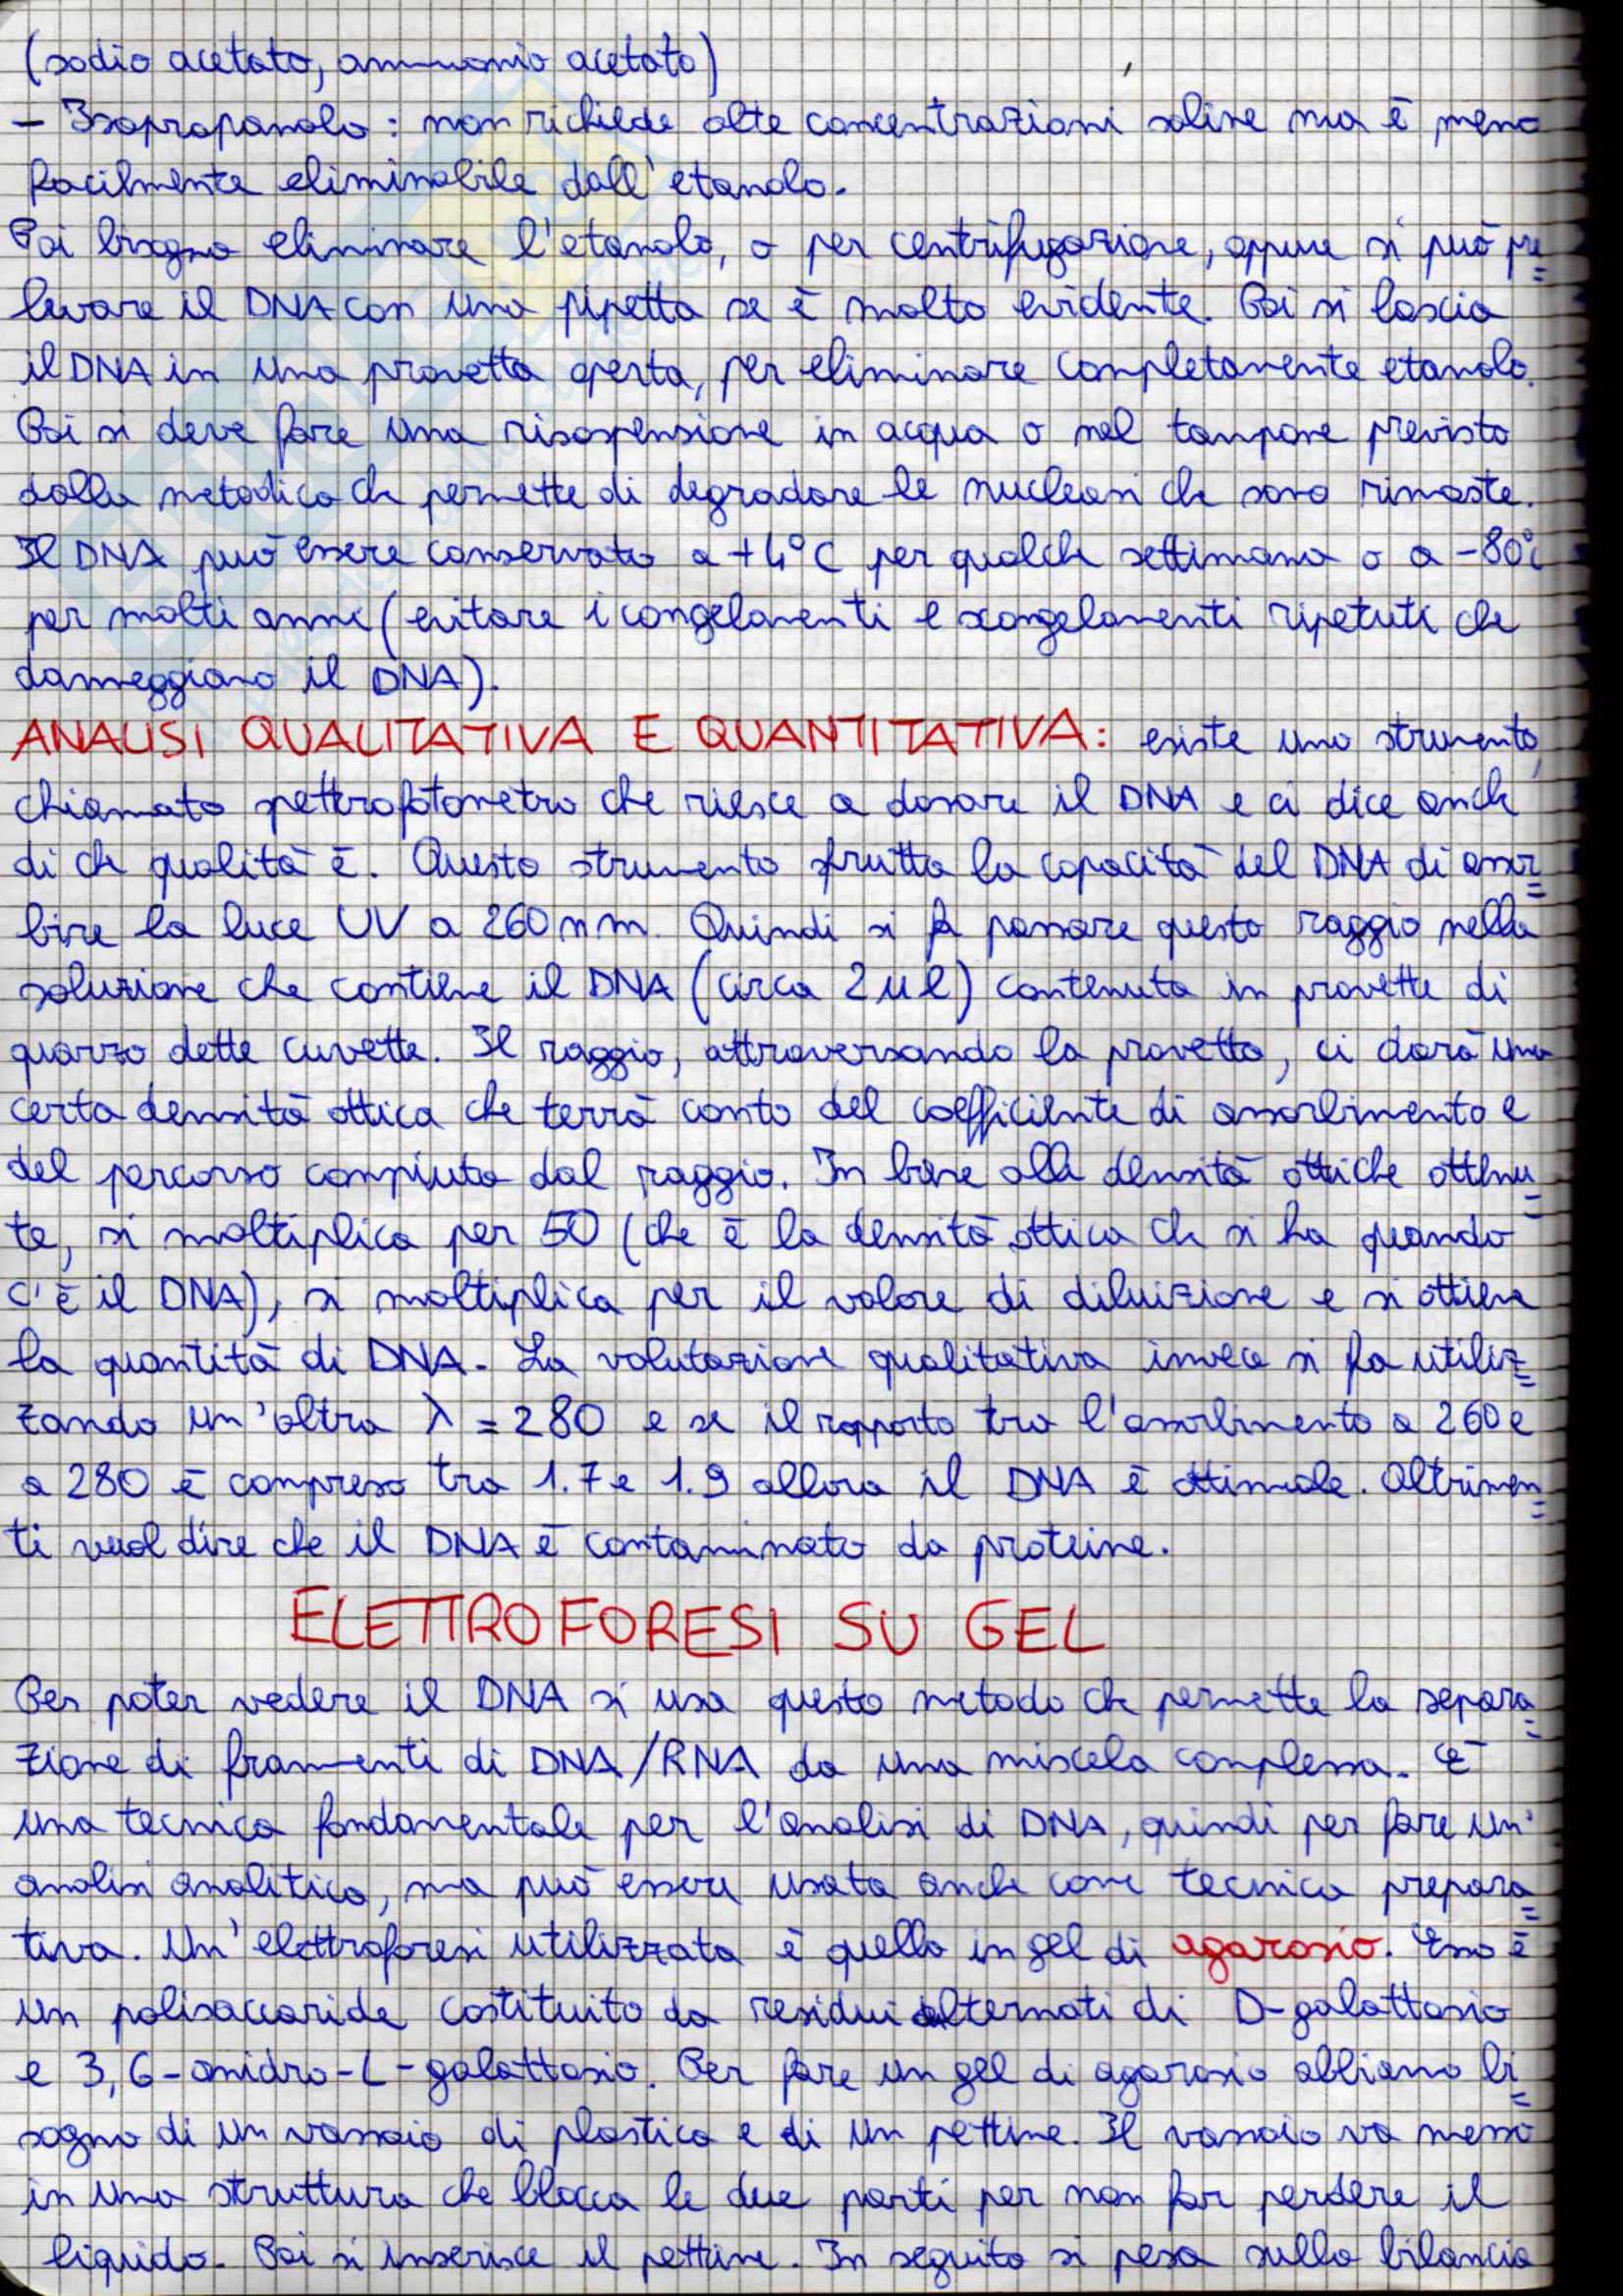 (sodio acetato, ammonio acetato)
- Isopropanolo: non richiede alte concentrazioni saline ma è meno
facilmente eliminabile dall'etanolo.
Poi bisogna eliminare l'etanolo, o per centrifugazione, oppure si può pre=
levare il DNA con una pipetta se è molto evidente. Poi si lascia
il DNA in una provetta aperta, per eliminare completamente etanolo.
Poi si deve fare una risospensione in acqua o nel tampone previsto
dalla metodica che permette di degradare le nucleasi che sono rimaste.
Il DNA può essere conservato a +4°C per qualche settimana o a -80°C
per molti anni (evitare i congelamenti e scongelamenti ripetuti che
danneggiano il DNA).
ANALISI QUALITATIVA E QUANTITATIVA: esiste uno strumento,
chiamato spettrofotometro che riesce a dosare il DNA e ci dice anche
di che qualità è. Questo strumento sfrutta la capacità del DNA di assor=
bire la luce UV a 260 nm. Quindi si fa passare questo raggio nella
soluzione che contiene il DNA (circa 2 µl) contenuta in provette di
quarzo dette cuvette. Il raggio, attraversando la provetta, ci darà una
certa densità ottica che terrà conto del coefficiente di assorbimento e
del percorso compiuto dal raggio. In base alle densità ottiche ottenu=
te, si moltiplica per 50 (che è la densità ottica che si ha quando
c'è il DNA), si moltiplica per il valore di diluizione e si ottiene
la quantità di DNA. La valutazione qualitativa invece si fa utiliz=
zando un'altra λ = 280 e se il rapporto tra l'assorbimento a 260 e
a 280 è compreso tra 1.7 e 1.9 allora il DNA è ottimale. Altrimen=
ti vuol dire che il DNA è contaminato da proteine.
ELETTROFORESI SU GEL
Per poter vedere il DNA si usa questo metodo che permette la separa=
zione di frammenti di DNA/RNA da una miscela complessa. È
una tecnica fondamentale per l'analisi di DNA, quindi per fare un'
analisi analitica, ma può essere usata anche come tecnica prepara=
tiva. Un'elettroforesi utilizzata è quella in gel di agarosio. Esso è
un polisaccaride costituito da residui alternati di D-galattosio
e 3,6-anidro-L-galattosio. Per fare un gel di agarosio abbiamo bi=
sogno di un vassoio di plastica e di un pettine. Il vassoio va messo
in una struttura che blocca le due parti per non far perdere il
liquido. Poi si inserisce il pettine. In seguito si pesa sulla bilancia